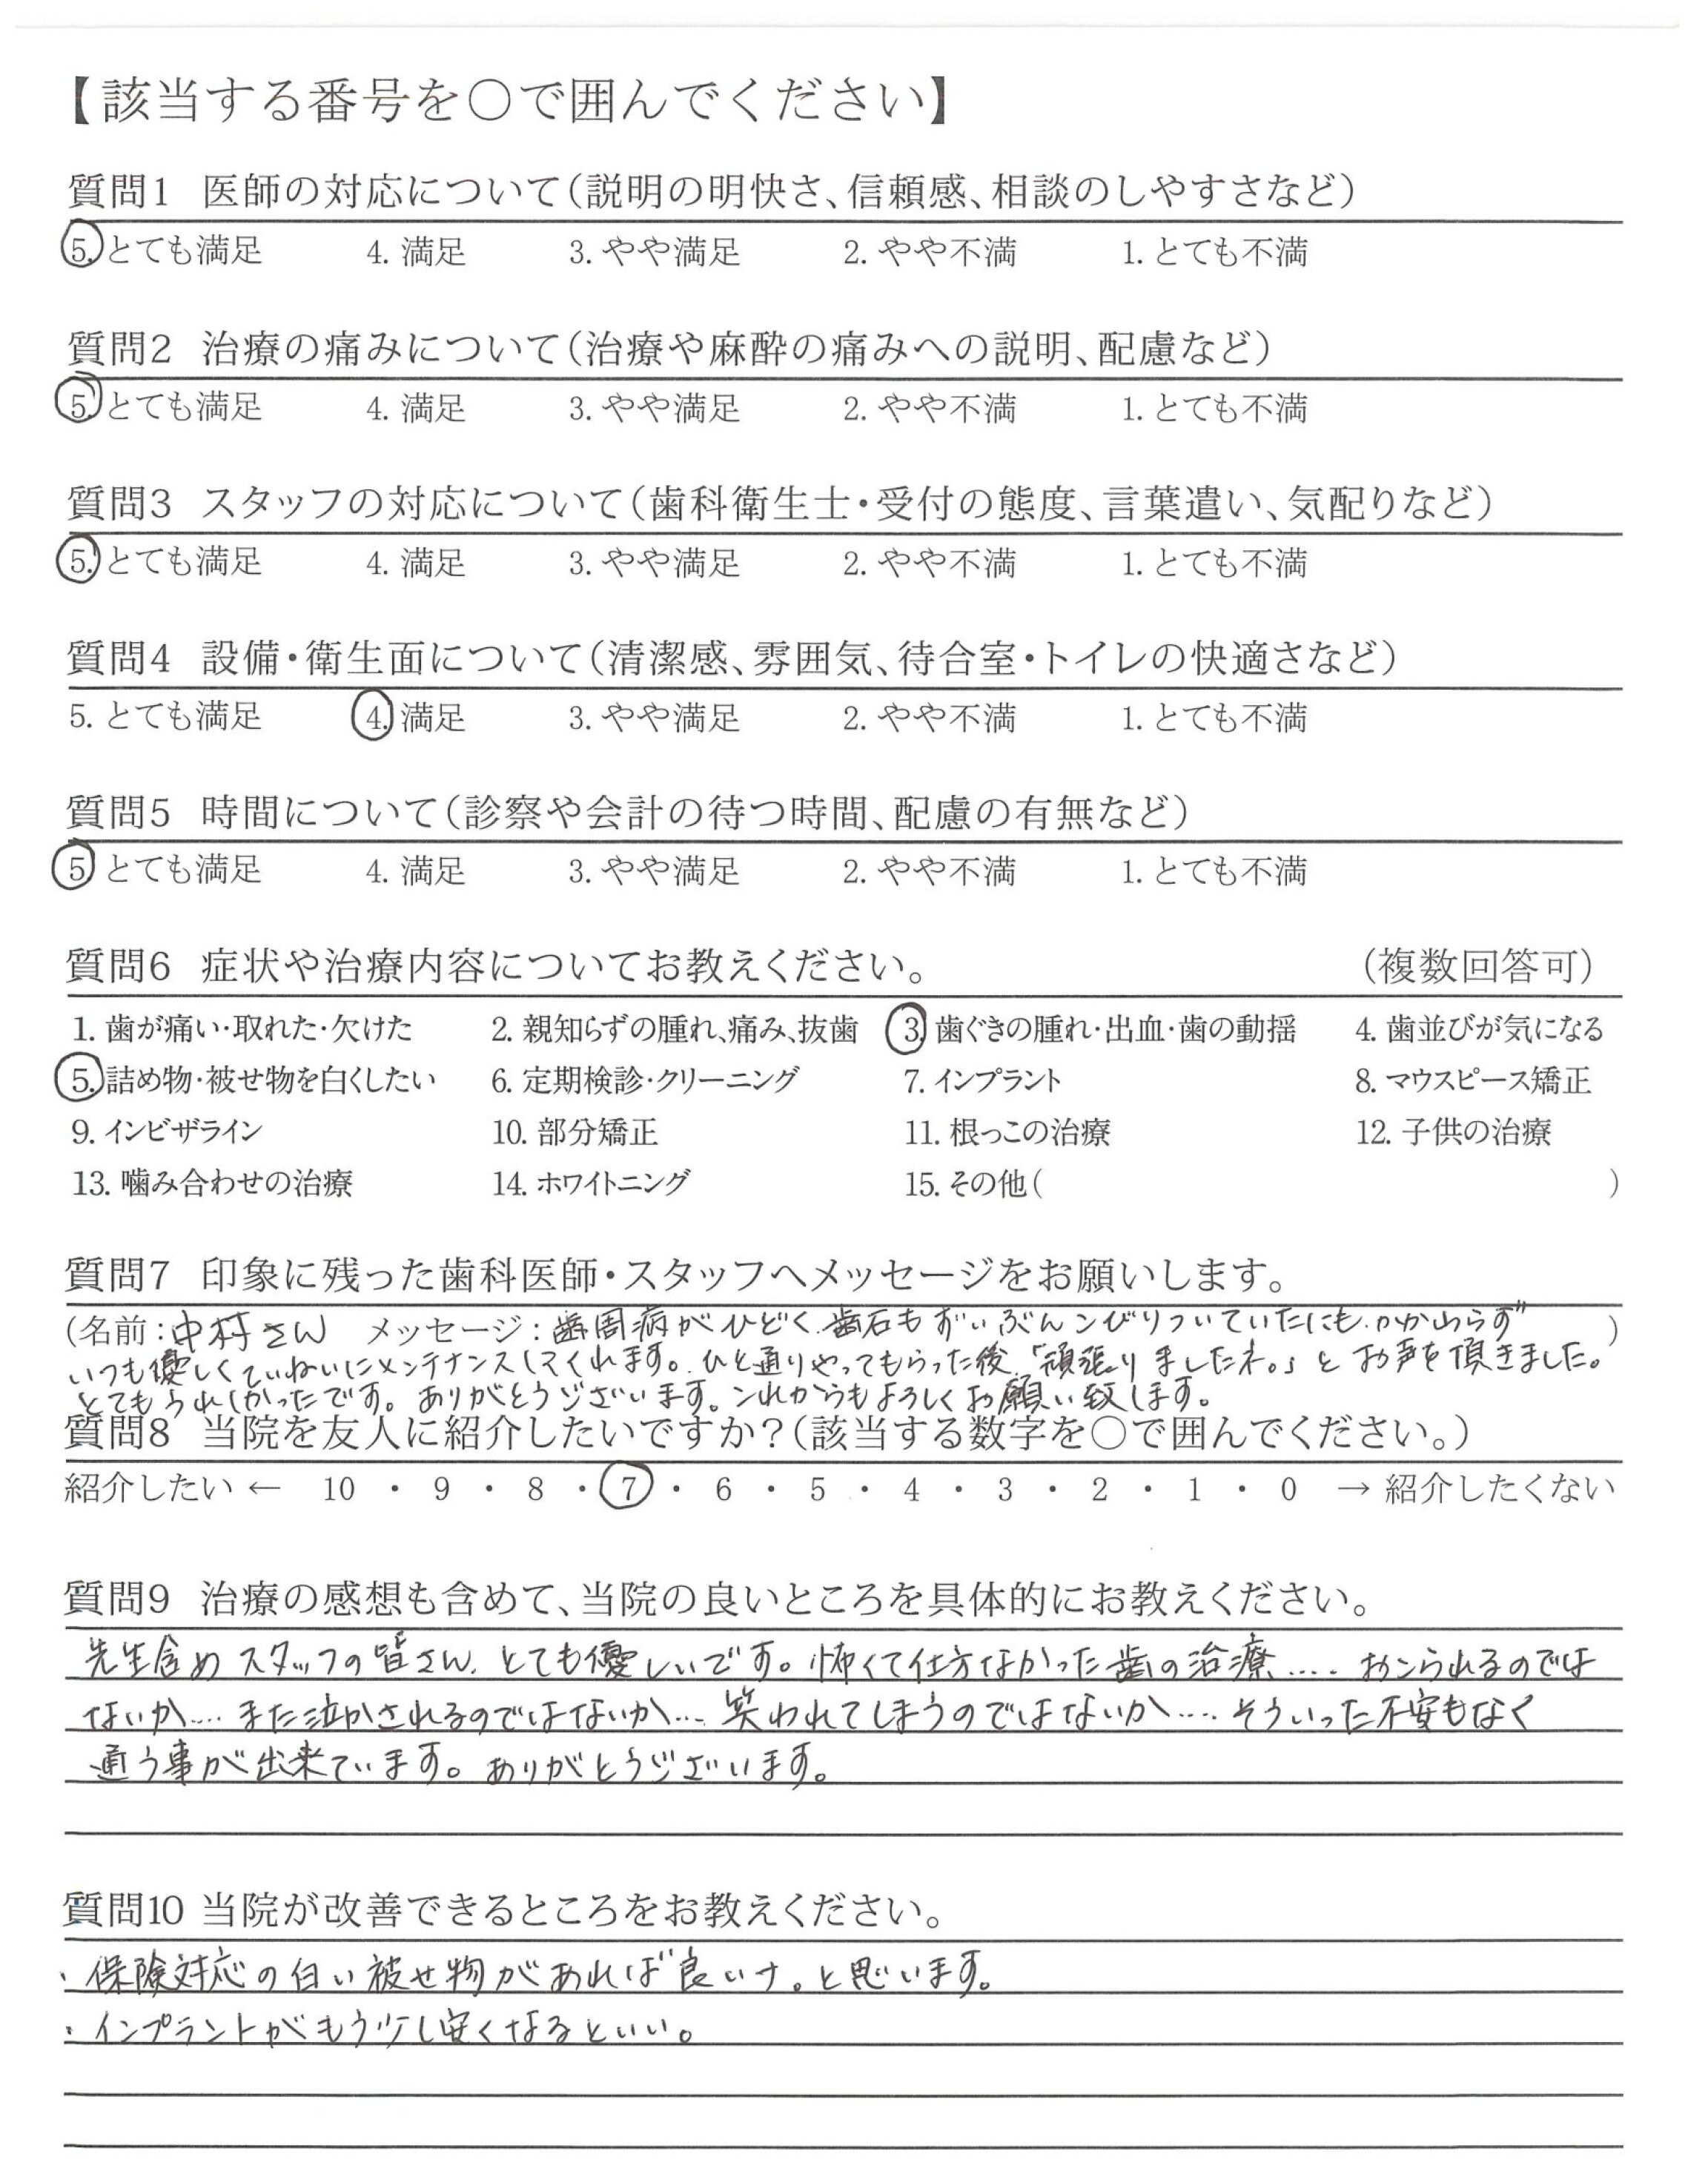 【該当する番号を〇で囲んでください】
質問1 医師の対応について(説明の明快さ、信頼感、相談のしやすさなど)
5. とても満足 4. 満足 3. やや満足 2. やや不満 1. とても不満
質問2 治療の痛みについて(治療や麻酔の痛みへの説明、配慮など)
5. とても満足 4. 満足 3. やや満足 2. やや不満 1. とても不満
質問3 スタッフの対応について(歯科衛生士・受付の態度、言葉遣い、気配りなど)
5. とても満足 4. 満足 3. やや満足 2. やや不満 1. とても不満
質問4 設備・衛生面について(清潔感、雰囲気、待合室・トイレの快適さなど)
5. とても満足 4. 満足 3. やや満足 2. やや不満 1. とても不満
質問5 時間について(診察や会計の待つ時間、配慮の有無など)
5 とても満足 4. 満足 3. やや満足 2. やや不満 1. とても不満
質問6 症状や治療内容についてお教えください。 (複数回答可)
1. 歯が痛い・取れた・欠けた 2. 親知らずの腫れ、痛み、抜歯 3. 歯ぐきの腫れ・出血・歯の動揺 4. 歯並びが気になる
5. 詰め物・被せ物を白くしたい 6. 定期検診・クリーニング 7. インプラント 8. マウスピース矯正
9. インビザライン 10. 部分矯正 11. 根っこの治療 12. 子供の治療
13. 噛み合わせの治療 14. ホワイトニング 15. その他( )
質問7 印象に残った歯科医師・スタッフへメッセージをお願いします。
(名前:中村さん メッセージ:歯周病がひどく、歯石もずいぶんこびりついていたにも、かかわらず )
いつも優しくていねいにメンテナンスしてくれます。ひと通りやってもらった後、「頑張りましたネ。」とお声を頂きました。
とてもうれしかったです。ありがとうございます。これからもよろしくお願い致します。
質問8 当院を友人に紹介したいですか?(該当する数字を〇で囲んでください。)
紹介したい ← 10 ・ 9 ・ 8 ・ 7 ・ 6 ・ 5 ・ 4 ・ 3 ・ 2 ・ 1 ・ 0 → 紹介したくない
質問9 治療の感想も含めて、当院の良いところを具体的にお教えください。
先生含めスタッフの皆さん、とても優しいです。怖くて仕方なかった歯の治療‥‥ おこられるのでは
ないか‥‥ また泣かされるのではないか‥‥ 笑われてしまうのではないか‥‥ そういった不安もなく
通う事が出来ています。ありがとうございます。
質問10 当院が改善できるところをお教えください。
・保険対応の白い被せ物があれば良いナ。と思います。
・インプラントがもう少し安くなるといい。